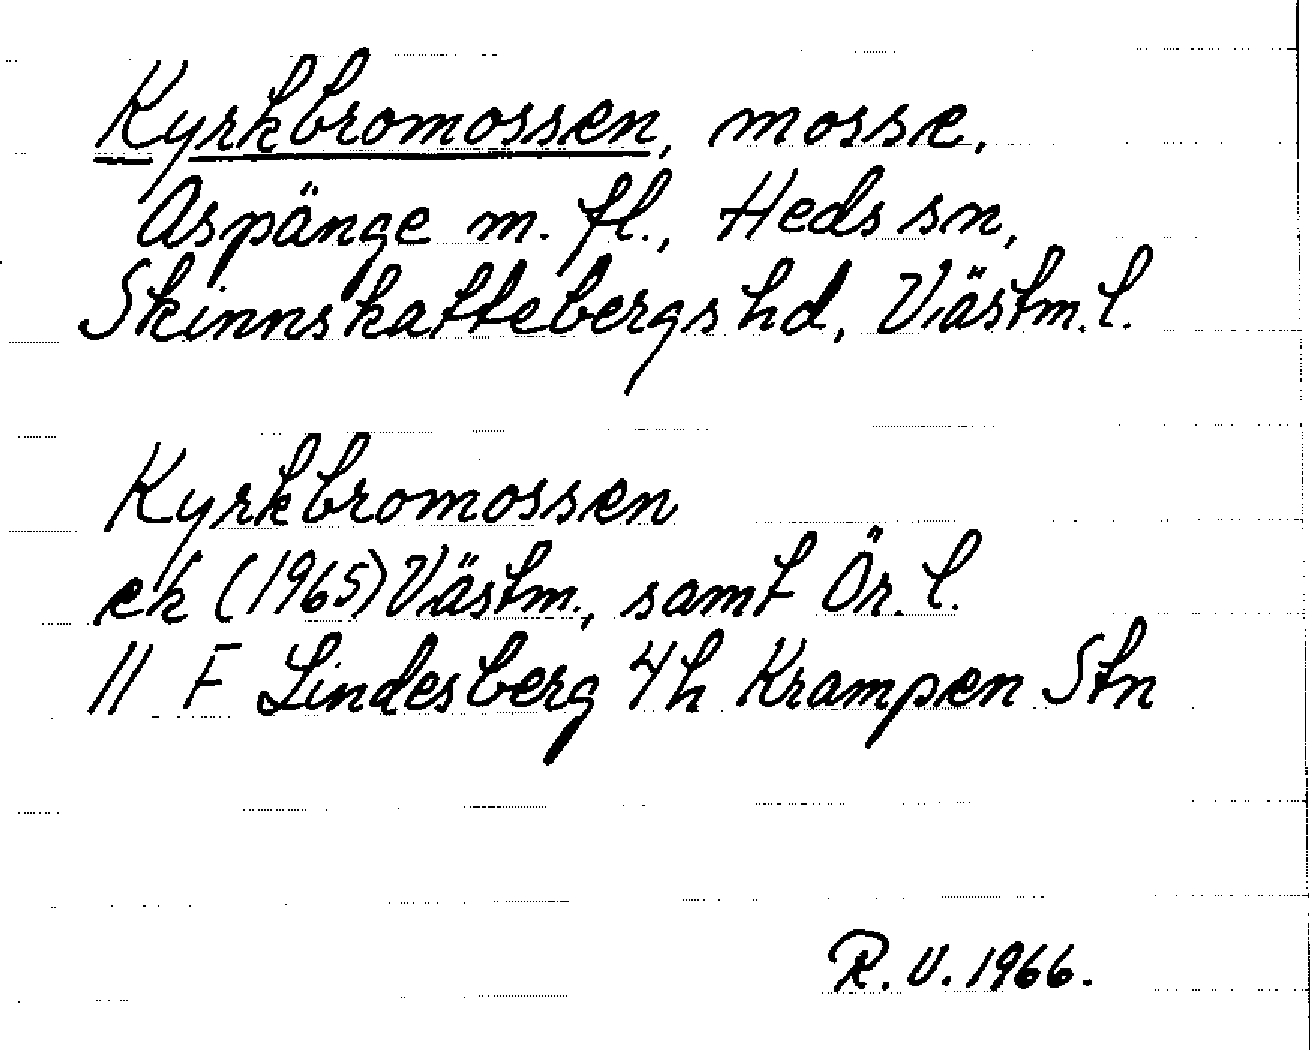 Kyrkbromossen, mosse.
Aspänge m. fl., Heds sn,
Skinnskattebergs hd, Västm. l.
Kyrkbromossen
ek (1965) Västm., samt Ör. l.
11 F Lindesberg 4 h Krampen Stn
R. V. 1966.